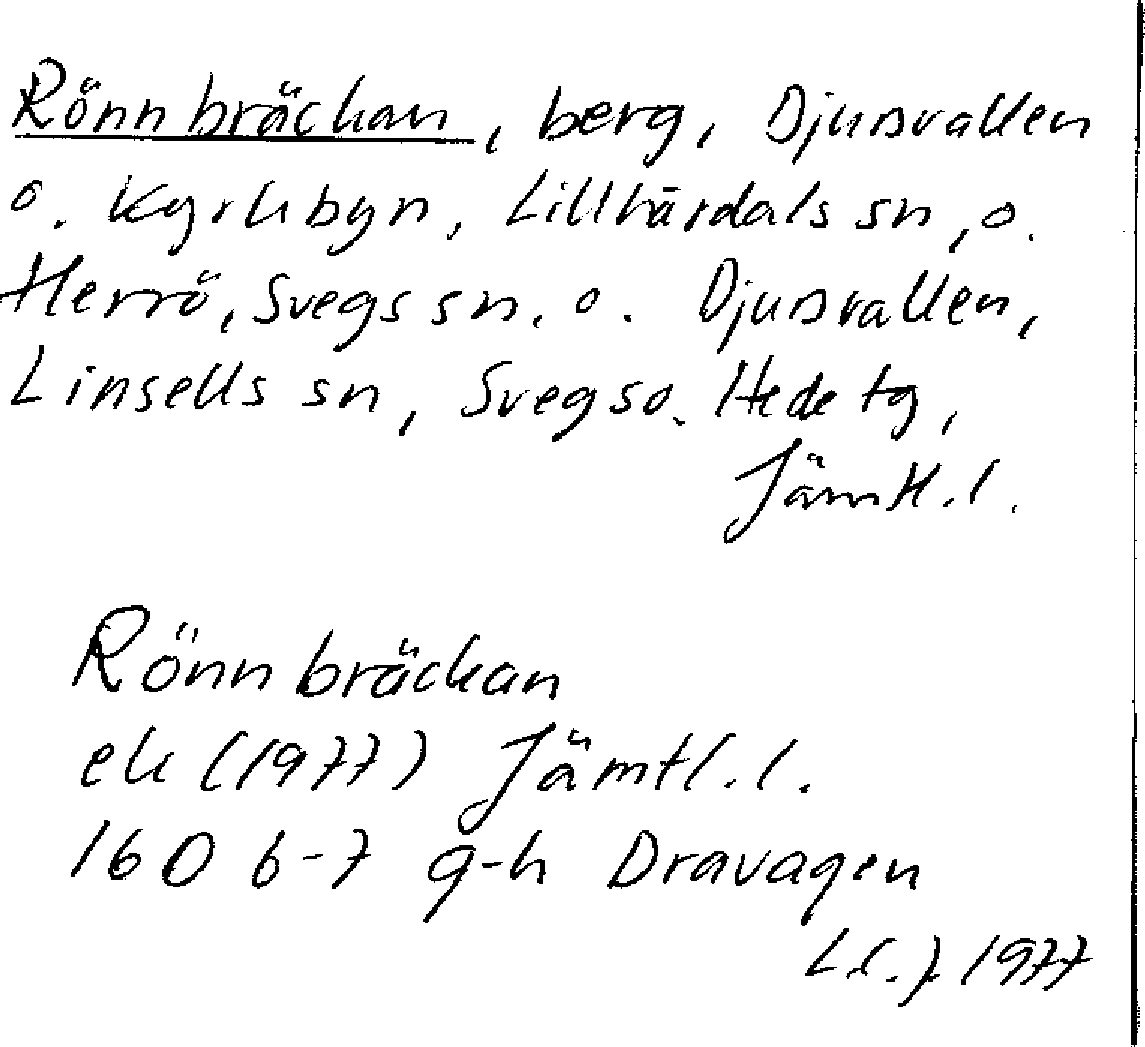 Rönnbräckan, berg, Djusvallen
o. Kyrkbyn, Lillhärdals sn, o.
Herrö, Svegs sn, o. Djusvallen,
Linsells sn, Svegs o. Hede tg,
Jämtl. l.
Rönnbräckan
ek (1977) Jämtl. l.
16D 6-7 g-h Dravagen
1977